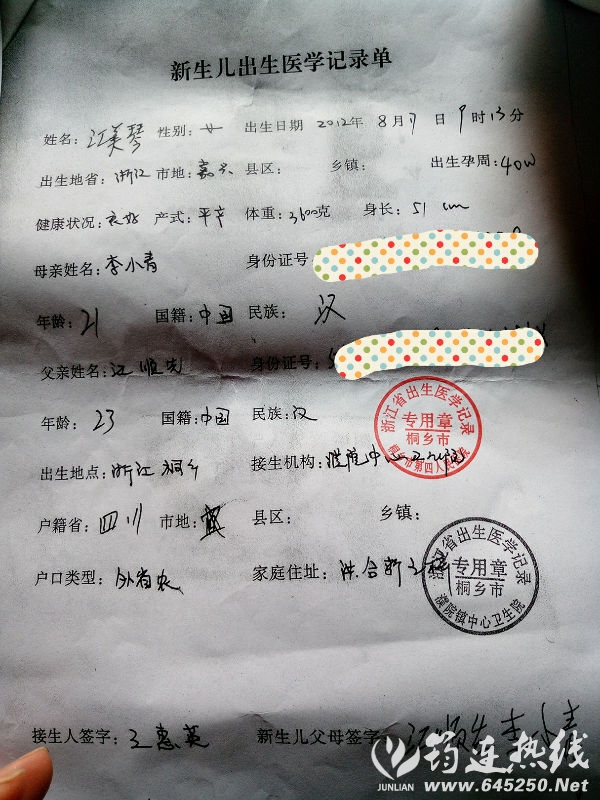 新生儿出生医学记录单
姓名：江美琴 性别：女 出生日期 2012年 8月7日9时13分
出生地省：浙江 市地：嘉兴 县区： 乡镇： 出生孕周：40W
健康状况：良好 产式：平产 体重：3600克 身长：51cm
母亲姓名：李小青 身份证号
年龄：21 国籍：中国 民族：汉
父亲姓名：江顺先 身份证号：
年龄：23 国籍：中国 民族：汉
浙江省出生医学记录
专用章
桐乡市
桐乡市第四人民医院
出生地点：浙江桐乡 接生机构：濮院中心卫生院
户籍省：四川 市地： 县区： 乡镇：
户口类型：外省农 家庭住址：洪合新
浙江省出生医学记录
专用章
桐乡市
濮院镇中心卫生院
接生人签字：王惠英 新生儿父母签字：江顺先 李小青
筠连热线
JUNLIAN www.645250.Net